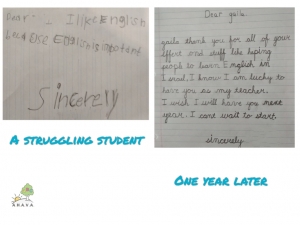 Dear I like English
because English is important
Sincerely
A STRUGGLING STUDENT
Dear yaila
yaila thank you for all of your
effort and stuff like helping
people to learn English in
Israel. I know I am lucky to
have you as my teacher.
I wish I will have you next
year. I cant wait to start.
sincerely
ONE YEAR LATER
ARAVA